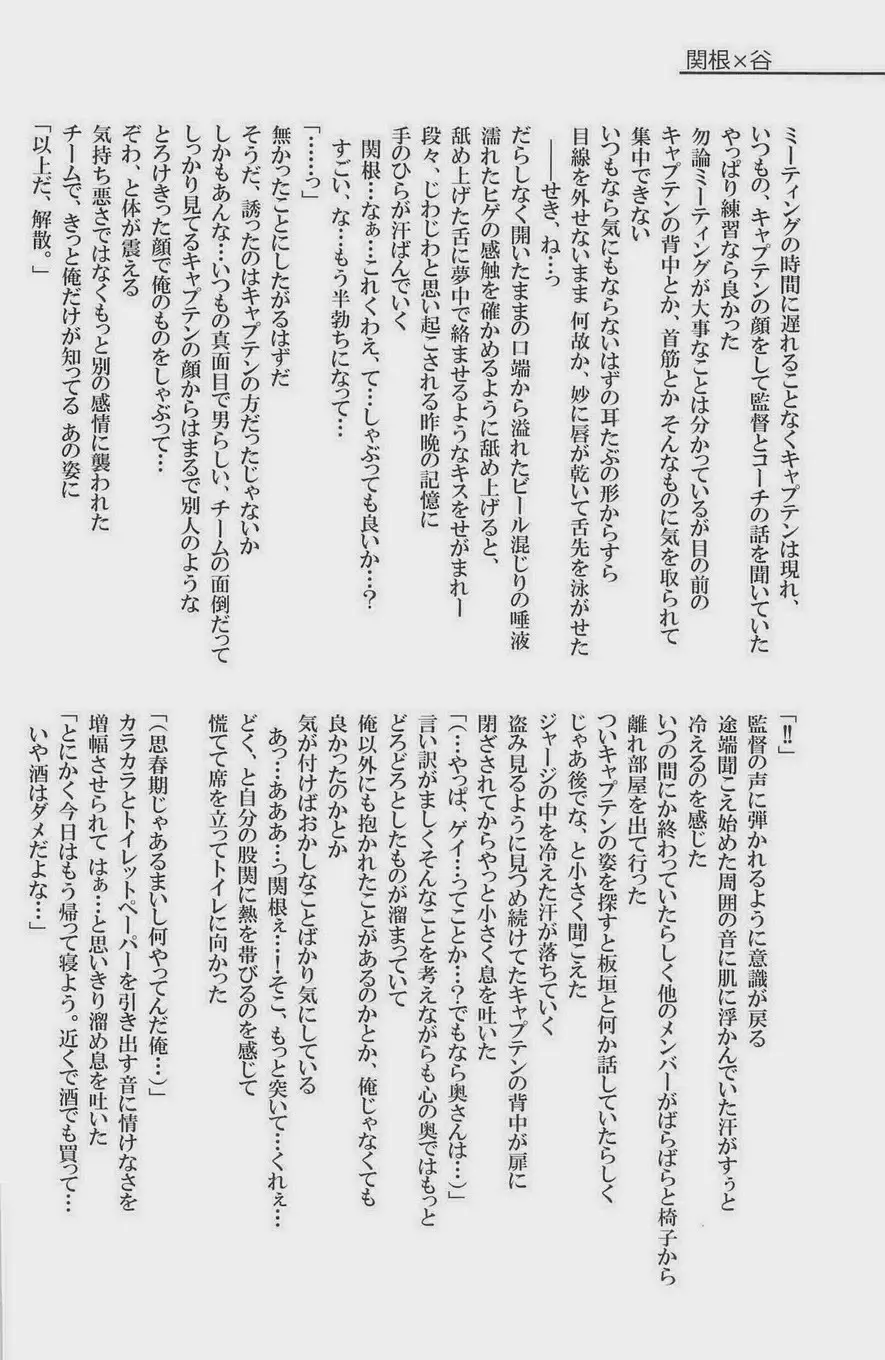 関根×谷
ミーティングの時間に遅れることなくキャプテンは現れ、
いつもの、キャプテンの顔をして監督とコーチの話を聞いていた
やっぱり練習なら良かった
勿論ミーティングが大事なことは分かっているが目の前の
キャプテンの背中とか、首筋とか そんなものに気を取られて
集中できない
いつもなら気にもならないはずの耳たぶの形からすら
目線を外せないまま 何故か、妙に唇が乾いて舌先を泳がせた
――せき、ね…っ
だらしなく開いたままの口端から溢れたビール混じりの唾液
濡れたヒゲの感触を確かめるように舐め上げると、
舐め上げた舌に夢中で絡ませるようなキスをせがまれー
段々、じわじわと思い起こされる昨晩の記憶に
手のひらが汗ばんでいく
関根…なぁ…これくわえ、て…しゃぶっても良いか…？
すごい、な…もう半勃ちになって…
「……っ」
無かったことにしたがるはずだ
そうだ、誘ったのはキャプテンの方だったじゃないか
しかもあんな…いつもの真面目で男らしい、チームの面倒だって
しっかり見てるキャプテンの顔からはまるで別人のような
とろけきった顔で俺のものをしゃぶって…
ぞわ、と体が震える
気持ち悪さではなくもっと別の感情に襲われた
チームで、きっと俺だけが知ってる あの姿に
「以上だ、解散。」
「!!」
監督の声に弾かれるように意識が戻る
途端聞こえ始めた周囲の音に肌に浮かんでいた汗がすぅと
冷えるのを感じた
いつの間にか終わっていたらしく他のメンバーがばらばらと椅子から
離れ部屋を出て行った
ついキャプテンの姿を探すと板垣と何か話していたらしく
じゃあ後でな、と小さく聞こえた
ジャージの中を冷えた汗が落ちていく
盗み見るように見つめ続けてたキャプテンの背中が扉に
閉ざされてからやっと小さく息を吐いた
「（…やっぱ、ゲイ…ってことか…？でもなら奥さんは…）」
言い訳がましくそんなことを考えながらも心の奥ではもっと
どろどろとしたものが溜まっていて
俺以外にも抱かれたことがあるのかとか、俺じゃなくても
良かったのかとか
気が付けばおかしなことばかり気にしている
あっ…あああ…っ関根ぇ…！そこ、もっと突いて…くれぇ…
どく、と自分の股関に熱を帯びるのを感じて
慌てて席を立ってトイレに向かった
「（思春期じゃあるまいし何やってんだ俺…）」
カラカラとトイレットペーパーを引き出す音に情けなさを
増幅させられて はぁ…と思いきり溜め息を吐いた
「とにかく今日はもう帰って寝よう。近くで酒でも買って…
いや酒はダメだよな…」